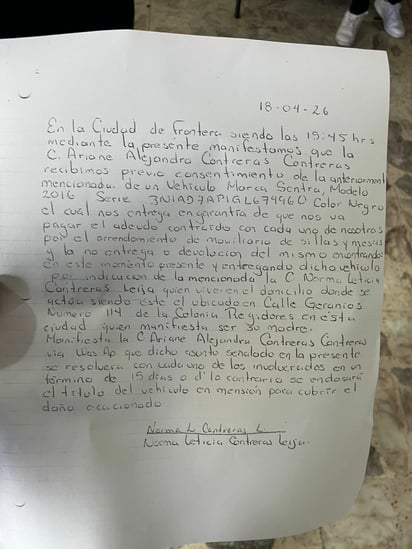 18-04-26
En la Ciudad de Frontera siendo las 15:45 hrs
mediante la presente manifestamos que la
C. Ariane Alejandra Contreras Contreras
recibimos previo consentimiento de la anteriorment
mencionada. de un Vehiculo Marca Sentra, Modelo
2016 Serie 3N1AD7AP1GL674960 Color Negro
el cual nos entrega en garantia de que nos va
pagar el adeudo contraido con cada uno de nosotros
por el arrendamiento de moviliario de sillas y mesas
y la no entrega o devolucion del mismo encontrando
en este momento presente y entregando dicho vehiculo
por indicacion de la mencionada la C. Norma Leticia
Contreras Leija quien vive en el domicilio donde se
actua siendo este el ubicado en Calle Geranios
Numero 114 de la Colonia Regidores en esta
ciudad quien manifiesta ser su madre.
Manifiesta la C Ariane Alejandra Contreras Contreras
via Was Ap que dicho asunto señalado en la presente
se resolvera con cada uno de los involucrados en un
termino de 15 dias o d' lo contrario se endosará
el titulo del vehiculo en mensión para cubrir el
daño ocacionado
Norma L Contreras L
Norma Leticia Contreras Leija.